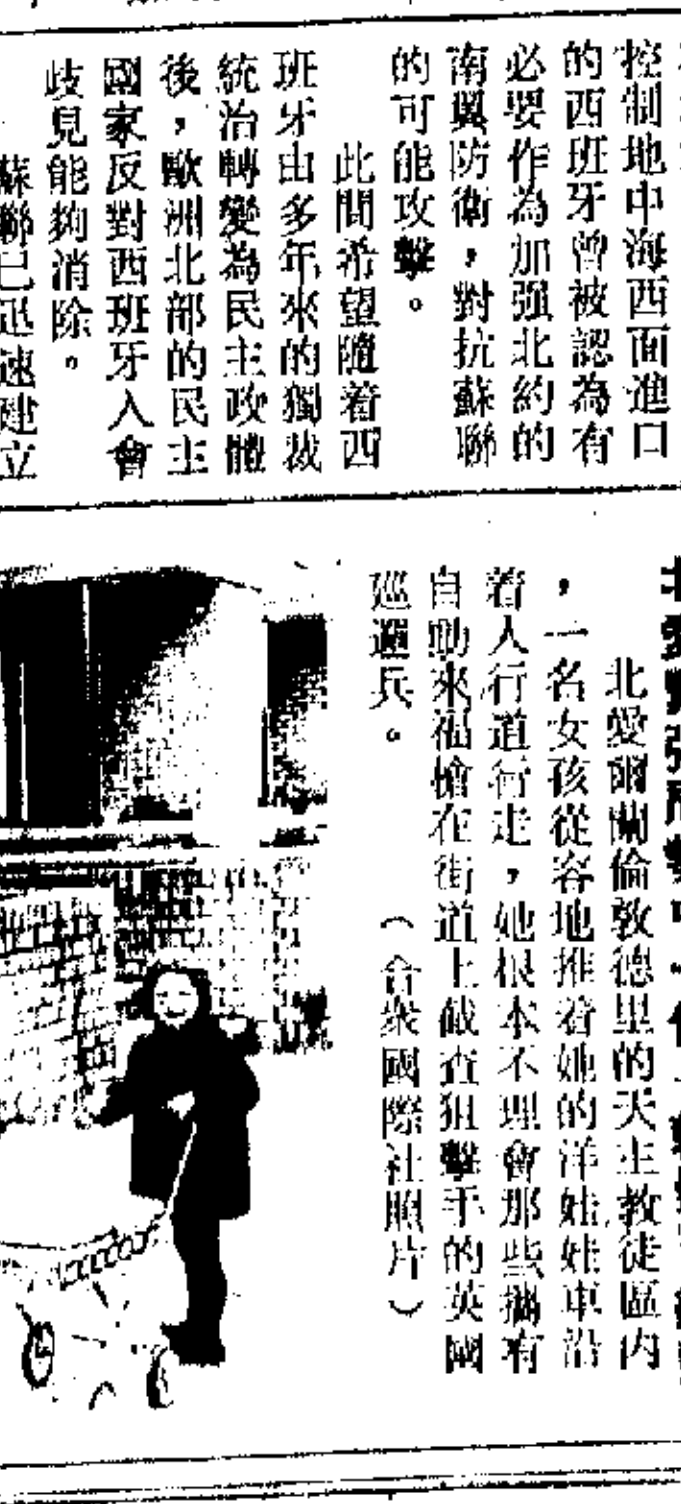 控制地中海西面進口
的西班牙曾被認為有
必要作為加强北約的
南翼防衛，對抗蘇聯
的可能攻擊。
此間希望隨着西
班牙由多年來的獨裁
統治轉變為民主政體
後，歐洲北部的民主
國家反對西班牙入會
歧見能夠消除。
蘇聯已迅速建立
北愛爾蘭倫敦德里的天主教徒區內
，一名女孩從容地推着她的洋娃娃車沿
着人行道行走，她根本不理會那些攜有
自動來福槍在街道上截查狙擊手的英國
巡邏兵。
（合衆國際社照片）